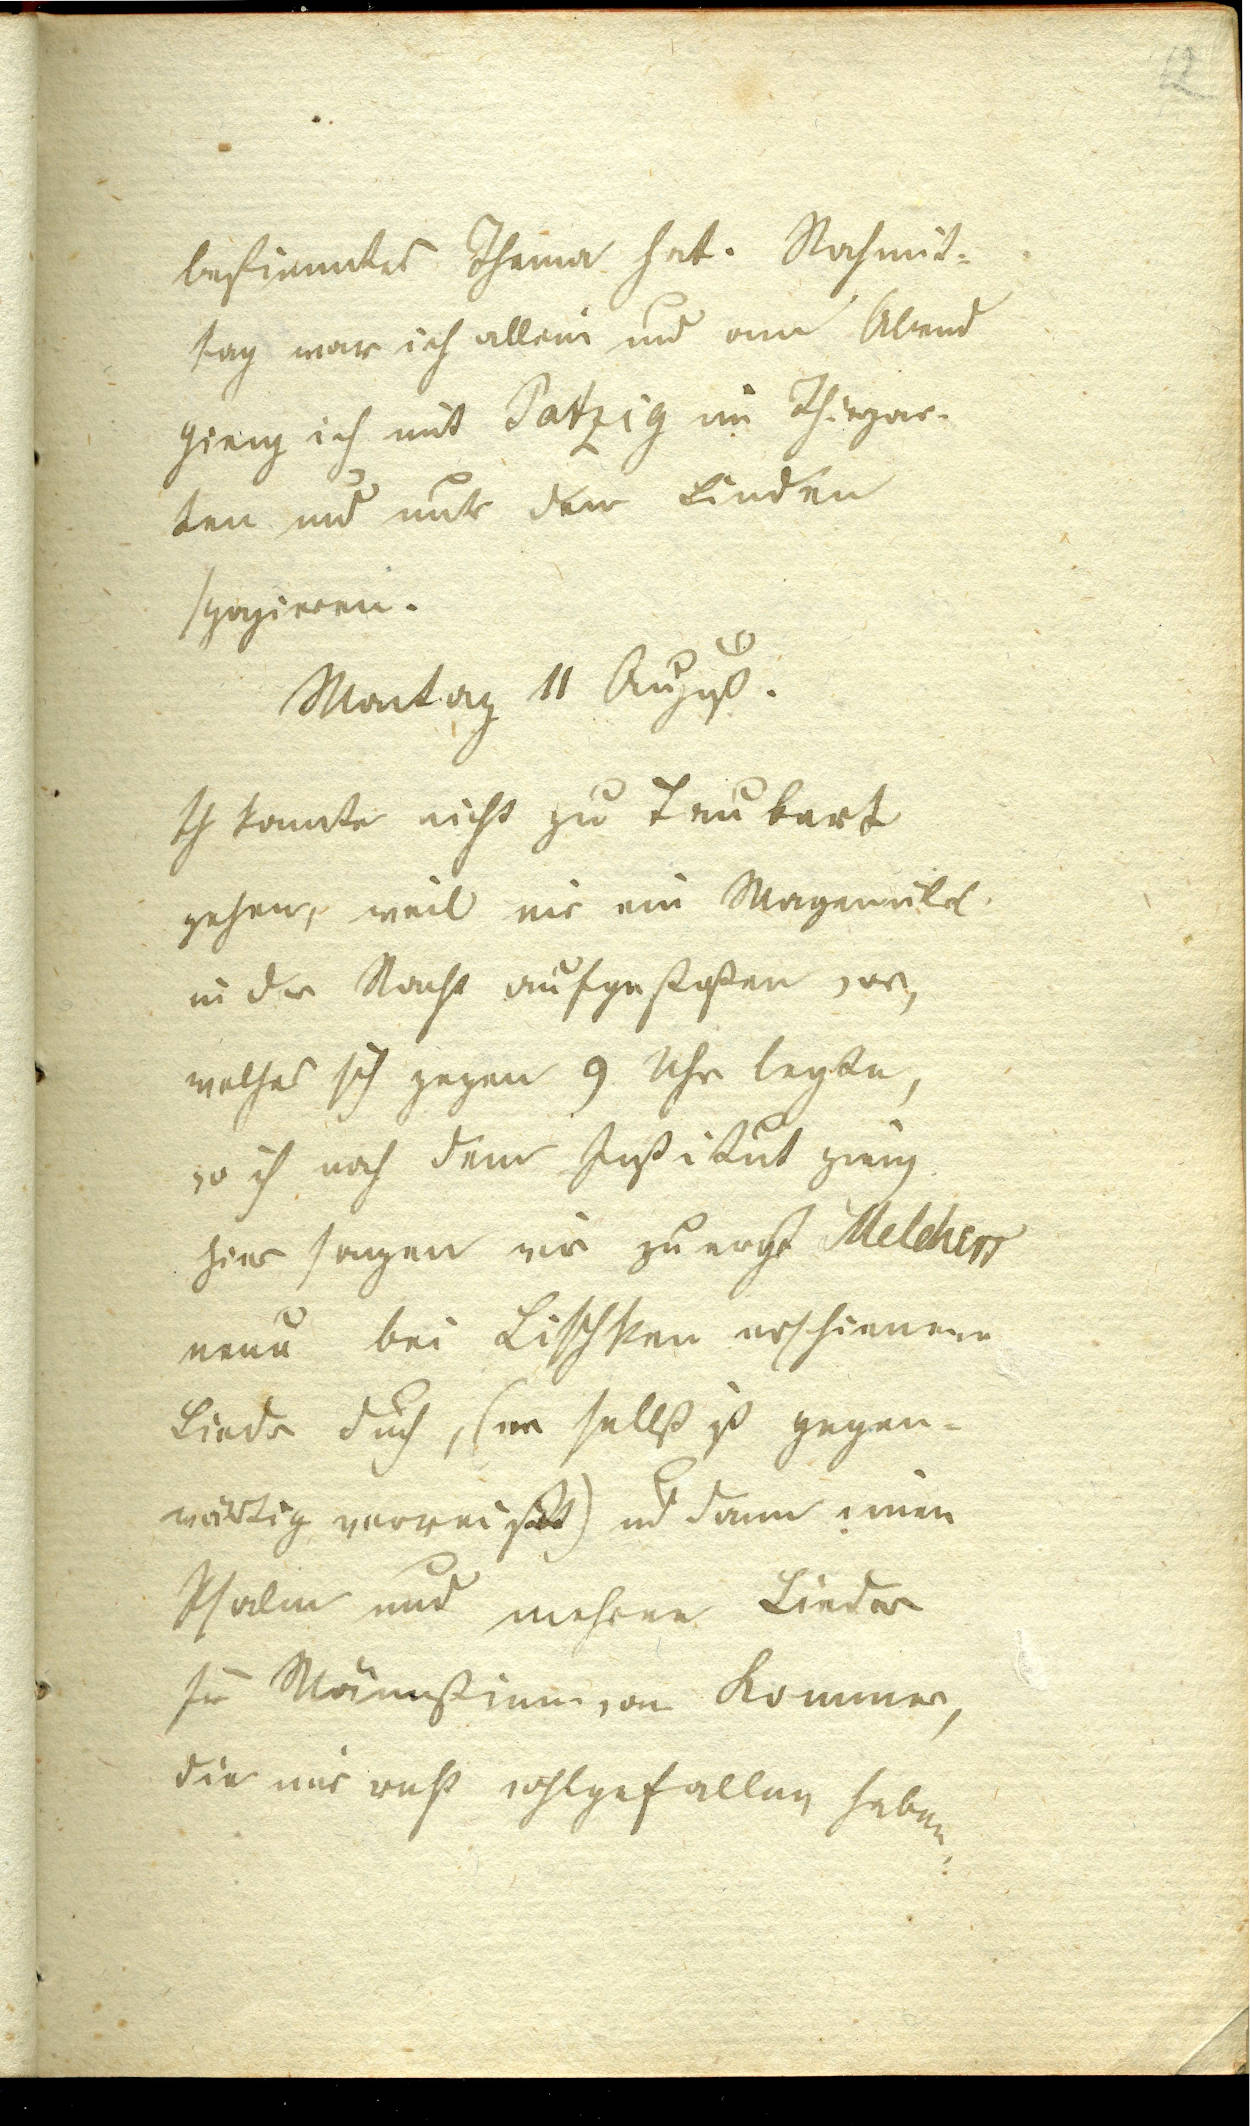 12
bestimmtes Thema hat. Nachmit-
tag war ich allein und am Abend
gieng ich mit Patzig im Thiergar-
ten und unter den Linden
spazieren.
Montag 11 August.
Ich konnte nicht zu Taubert
gehen, weil mir ein Magenübel
in der Nacht aufgestoßen war,
welches sich gegen 9 Uhr legte,
wo ich nach dem Institut gieng
hier sangen wir zuerst Melchers
neue bei Lischken erschienene
Lieder durch, (er selbst ist gegen-
wärtig verreist) und dann einen
Psalm und mehrere Lieder
für Männerstimmen von Kommer,
die mir recht wohlgefallen haben.